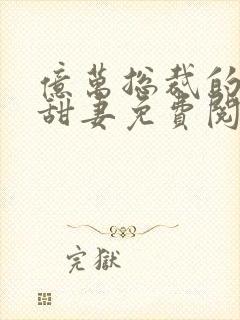 億萬總裁的
甜妻免費閱
完獄